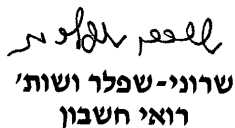 שרוני-שפלר ושות'
רואי חשבון